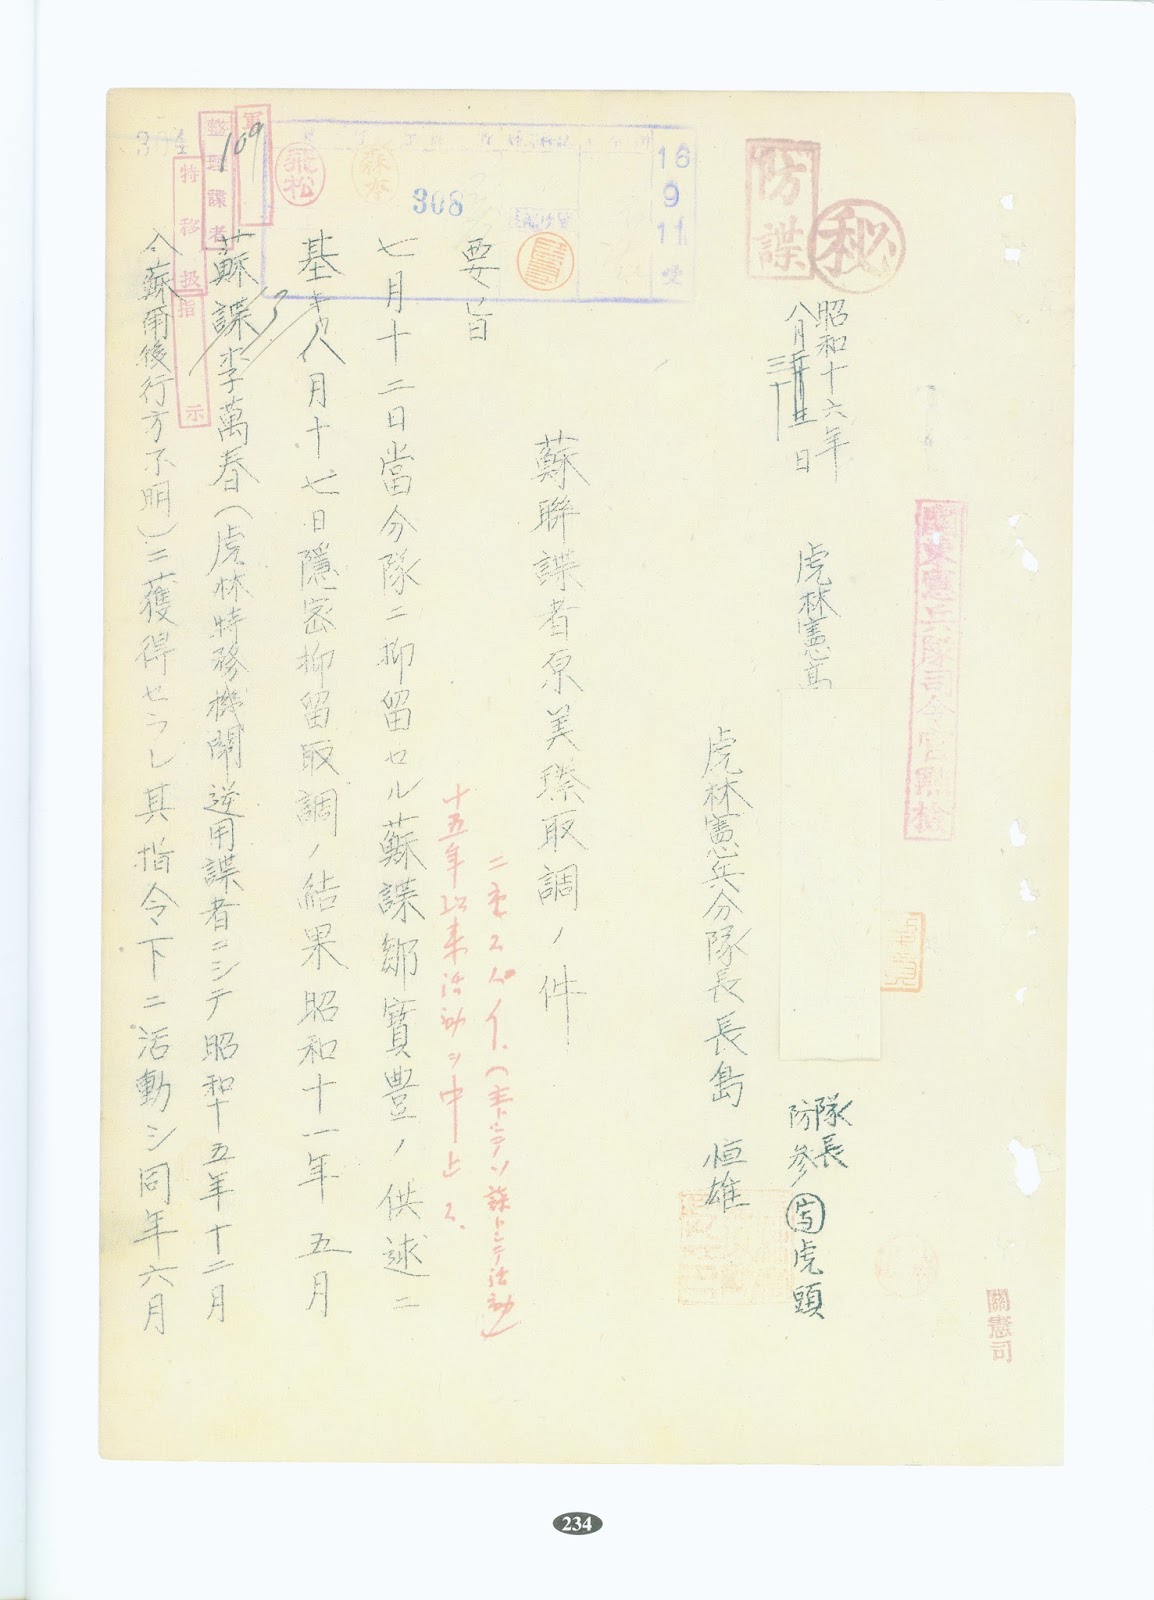 防諜
秘
關東憲兵隊司令官點檢
關憲司
16
9
11
受
308
109
整理諜者
特移扱指示
飛松
昭和十六年
八月三十日
虎林憲高
隊長
防參
写虎頭
虎林憲兵分隊長長島 恒雄
蘇聯諜者原美臻取調ノ件
要旨
七月十二日當分隊ニ抑留セル蘇諜鄒寶豊ノ供述ニ
基キ八月十七日隱密抑留取調ノ結果昭和十一年五月
蘇諜李萬春(虎林特務機關逆用諜者ニシテ昭和十五年十二月
入蘇用後行方不明)ニ獲得セラレ其指令下ニ活動シ同年六月
十五年以来活動ヲ中止ス
234